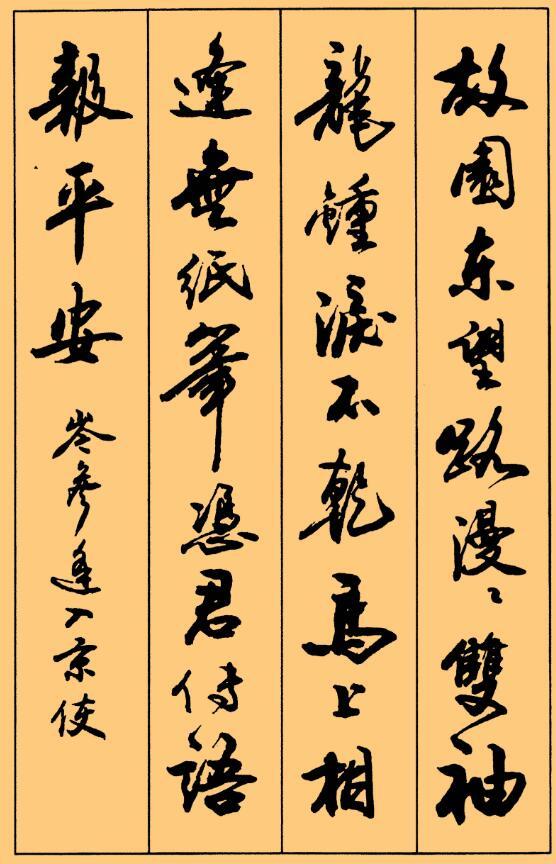 故園东望路漫〻雙袖
龍鍾淚不乾馬上相
逢無紙筆憑君傳語
報平安
岑參逢入京使